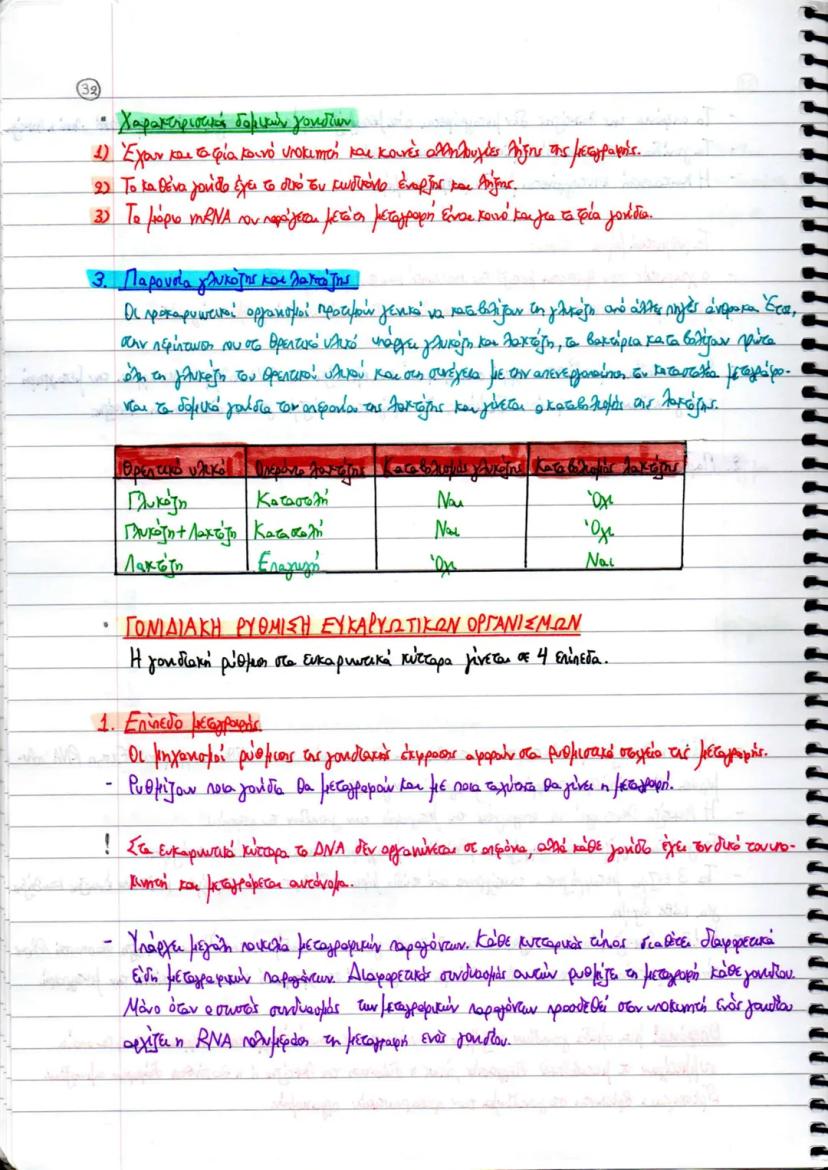 32
· Χαρακτηριστικά δομικών γονιδίων
1) Έχουν και τα τρία κοινό υποκινητή και κοινές αλληλουχίες λήξης της μεταγραφής.
2) Το καθένα γονίδιο έχει το δικό του κωδικόνιο έναρξης και λήξης.
3) Το μόριο mRNA που παράγεται μετά τη μεταγραφή είναι κοινό και για τα τρία γονίδια.
3. Παρουσία γλυκόζης και λακτόζης
Οι προκαρυωτικοί οργανισμοί προτιμούν γενικά να καταβολίζουν τη γλυκόζη από άλλες πηγές άνθρακα. Έτσι,
στην περίπτωση που στο θρεπτικό υλικό υπάρχει γλυκόζη και λακτόζη, τα βακτήρια καταβολίζουν πρώτα
όλη τη γλυκόζη του θρεπτικού υλικού και στη συνέχεια με την απενεργοποίηση του καταστολέα μεταγράφο-
νται τα δομικά γονίδια του οπερονίου της λακτόζης και γίνεται ο καταβολισμός της λακτόζης.
Θρεπτικό υλικό Οπερόνιο λακτόζης Καταβολισμός γλυκόζης Καταβολισμός λακτόζης
Γλυκόζη Καταστολή Ναι Όχι
Γλυκόζη + Λακτόζη Καταστολή Ναι Όχι
Λακτόζη Επαγωγή Όχι Ναι
· ΓΟΝΙΔΙΑΚΗ ΡΥΘΜΙΣΗ ΕΥΚΑΡΥΩΤΙΚΩΝ ΟΡΓΑΝΙΣΜΩΝ
Η γονιδιακή ρύθμιση στα ευκαρυωτικά κύτταρα γίνεται σε 4 επίπεδα.
1. Επίπεδο μεταγραφής
Οι μηχανισμοί ρύθμισης της γονιδιακής έκφρασης αφορούν στα ρυθμιστικά στοιχεία της μεταγραφής.
- Ρυθμίζουν ποια γονίδια θα μεταγραφούν και με ποια ταχύτητα θα γίνει η μεταγραφή.
! Στα ευκαρυωτικά κύτταρα το DNA δεν οργανώνεται σε οπερόνια, αλλά κάθε γονίδιο έχει τον δικό του υπο-
κινητή και μεταγράφεται αυτόνομα.
- Υπάρχει μεγάλη ποικιλία μεταγραφικών παραγόντων. Κάθε κυτταρικός τύπος διαθέτει διαφορετικά
είδη μεταγραφικών παραγόντων. Διαφορετικός συνδυασμός αυτών ρυθμίζει τη μεταγραφή κάθε γονιδίου.
Μόνο όταν ο σωστός συνδυασμός των μεταγραφικών παραγόντων προσδεθεί στον υποκινητή ενός γονιδίου
αρχίζει η RNA πολυμεράση τη μεταγραφή ενός γονιδίου.